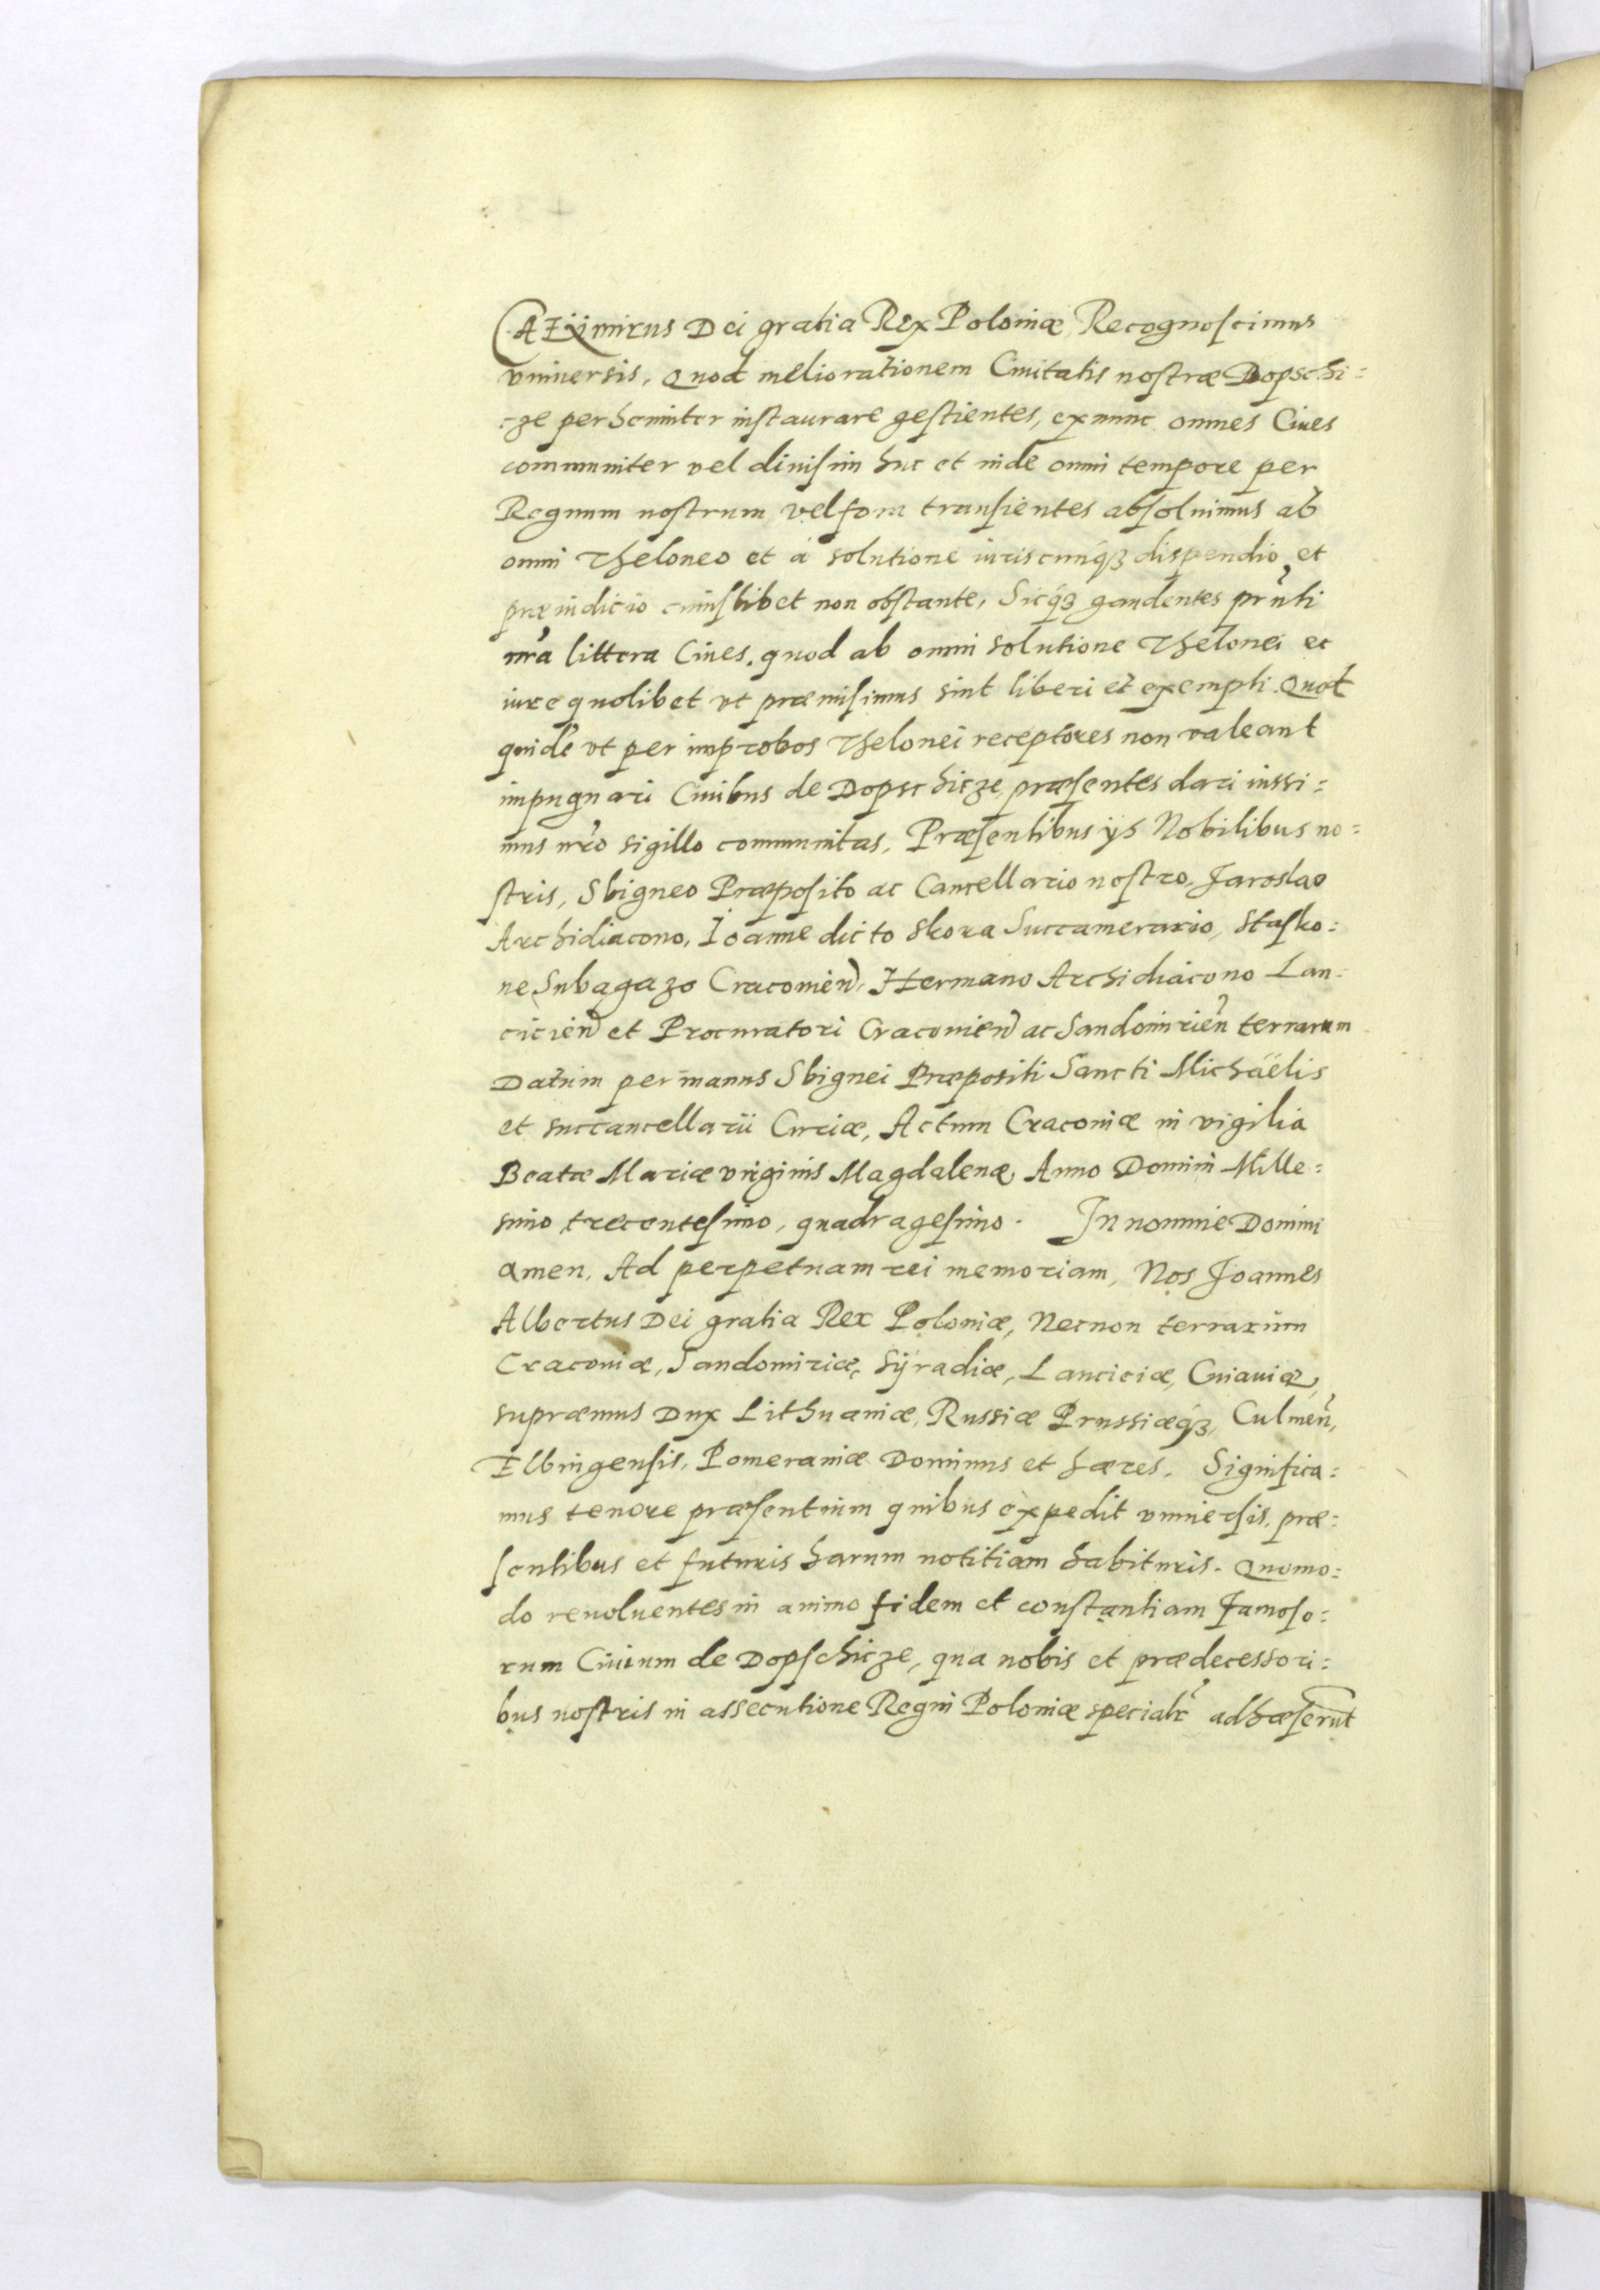 CAZimirus Dei gratia Rex Poloniæ, Recognoscimus
vniuersis, Quod meliorationem Ciuitatis nostræ Dopschi=
=ze perhenniter instaurare gestientes, ex nunc omnes Ciues
communiter vel diuisim huc et inde omni tempore per
Regnum nostrum vel fora transientes absoluimus ab
omni Theloneo et à solutione iuriscunq́3 dispendio et
præiudicio cuiuslibet non obstante, Sicq́3 gaudentes prñti
nrã littera Ciues, quod ab omni solutione Thelonei et
iure quolibet vt præmisimus sint liberi et exempti. Quod
quidẽ vt per improbos Thelonei receptores non valeant
impugnari Ciuibus de Dopschicze præsentes dari iussi=
mus nrõ sigillo communitas, Præsentibus ijs Nobilibus no=
stris, Sbigneo Præposito ac Cancellario nostro, Jaroslao
Archidiacono, Joanne dicto Skora Succamerario, Stasko=
ne Subagazo Cracouieñ, Hermano Archidiacono Lan=
cicieñ et Procuratori Cracouieñ ac Sandomirieñ terrarum
Datum per manus Sbignei Præpositi Sancti Michaëlis
et succancellarii Curiæ, Actum Cracouiæ in vigilia
Beatæ Mariæ virginis Magdalenæ, Anno Domini Mille=
simo trecentesimo, quadragesimo. In nomine Domini
amen, Ad perpetuam rei memoriam, Nos Joannes
Albertus Dei gratia Rex Poloniæ, Necnon terrarum
Cracouiæ, Sandomiriæ, Syradiæ, Lanciciæ, Cuiauiæ,
supræmus Dux Lithuaniæ, Russiæ Prussiæq́3, Culmeñ,
Elbingensis, Pomeraniæ Dominus et hæres, Significa=
mus tenore præsentium quibus expedit vniuersis, præ=
sentibus et futuris harum notitiam habituris. Quomo=
do reuoluentes in animo fidem et constantiam Famoso=
rum Ciuium de Dopschicze, qua nobis et prædecessori=
bus nostris in assecutione Regni Poloniæ specialr̃ adhæserũt